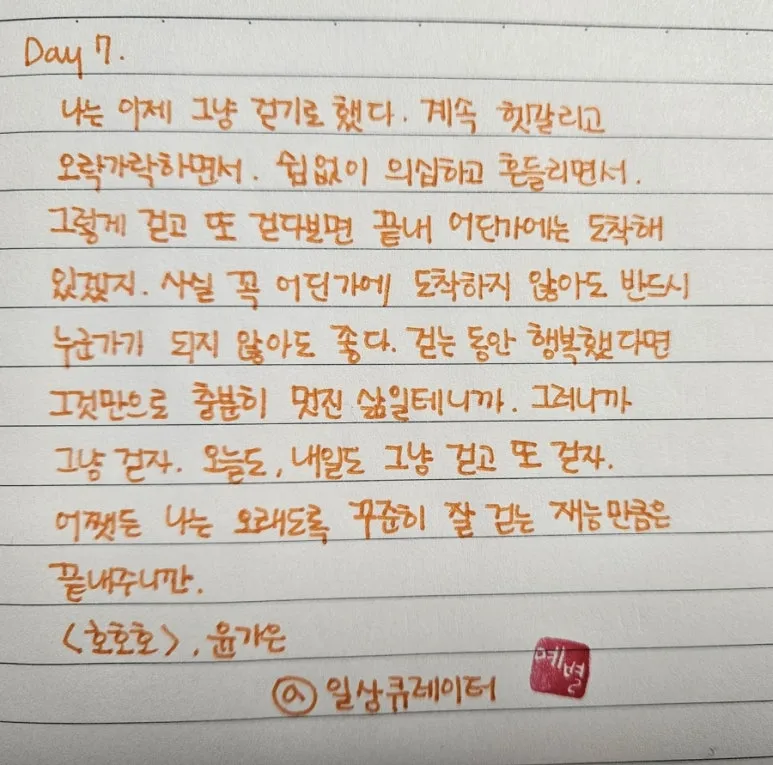 Day 7.
나는 이제 그냥 걷기로 했다. 계속 헷갈리고
오락가락하면서. 쉼없이 의심하고 흔들리면서.
그렇게 걷고 또 걷다보면 끝내 어딘가에는 도착해
있겠지. 사실 꼭 어딘가에 도착하지 않아도 반드시
누군가가 되지 않아도 좋다. 걷는 동안 행복했다면
그것만으로 충분히 멋진 삶일테니까. 그러니까
그냥 걷자. 오늘도, 내일도 그냥 걷고 또 걷자.
어쨋든 나는 오래도록 꾸준히 잘 걷는 재능만큼은
끝내주니깐.
<호호호>, 윤가은
@ 일상큐레이터
예별